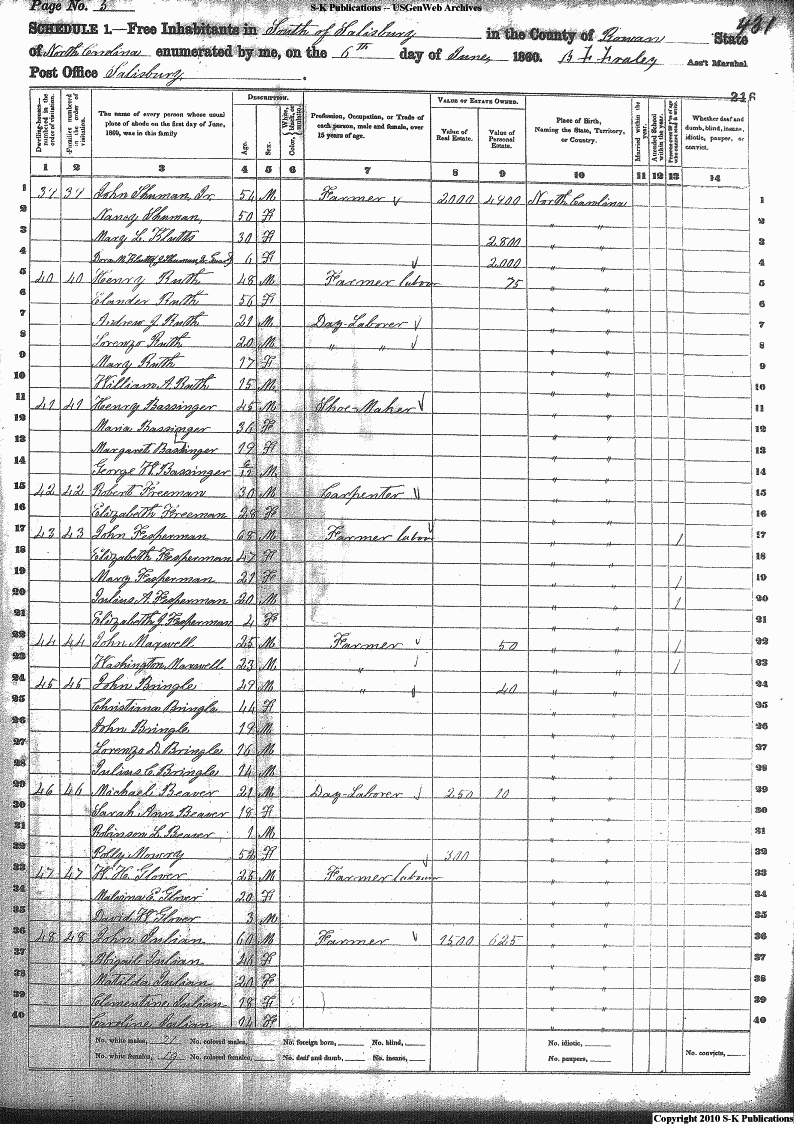 Page No. 5
S-K Publications -- USGenWeb Archives
431
SCHEDULE 1.—Free Inhabitants in South of Salisbury in the County of Rowan State
of North Carolina enumerated by me, on the 6th day of June, 1860. Ass't Marshal
Post Office Salisbury.
216
Dwelling-houses—numbered in the order of visitation.
Families numbered in the order of visitation.
The name of every person whose usual place of abode on the first day of June, 1860, was in this family
DESCRIPTION.
Age.
Sex.
Color, White, black, or mulatto.
Profession, Occupation, or Trade of each person, male and female, over 15 years of age.
VALUE OF ESTATE OWNED.
Value of Real Estate.
Value of Personal Estate.
Place of Birth, Naming the State, Territory, or Country.
Married within the year.
Attended School within the year.
Whether deaf and dumb, blind, insane, idiotic, pauper, or convict.
1 2 3 4 5 6 7 8 9 10 11 12 13 14
1 John Shuman, Jr 54 M Farmer 2000 4900 North Carolina 1
2 Nancy Shuman, 50 F " " 2
3 Mary L. Kluttz 30 F 2.800 " " 3
4 6 F 2.000 " " 4
5 40 40 Henry Ruth 48 M Farmer labour 75 " " 5
6 Elander Ruth 56 F " " 6
7 Andrew J. Ruth 21 M Day-Laborer " " 7
8 Lorenzo Ruth 20 M " " " " 8
9 Mary Ruth 17 F " " 9
10 William A. Ruth 15 M " " 10
11 41 41 Henry Bassinger 45 M Shoe-Maker " " 11
12 Maria Bassinger 36 F " " 12
13 Margaret Bassinger 19 F " " 13
14 George H. Bassinger M " " 14
15 42 42 Robert Freeman 30 M Carpenter " " 15
16 Elizabeth Freeman 28 F " " 16
17 43 43 John Fesperman 68 M Farmer labou " " / 17
18 Elizabeth Fesperman 47 F " " 18
19 Mary Fesperman 21 F " " / 19
20 Julius A. Fesperman 20 M " " / 20
21 Elizabeth J. Fesperman 4 F " 21
22 44 44 John Maxwell 25 M Farmer 50 " " / 22
23 Washington Maxwell 23 M " " " / 23
24 45 45 John Bringle 49 M " 40 " " 24
25 Christiana Bringle 44 F " " 25
26 John Bringle 19 M " " 26
27 Lorenzo D. Bringle 16 M " " 27
28 Julius C. Bringle 14 M " " 28
29 46 46 Michael Beaver 21 M Day-Laborer 250 10 " " 29
30 Sarah Ann Beaver 18 F " " 30
31 Robinson L. Beaver 1 M " " 31
32 Polly Mowry 52 F 300 " " 32
33 47 47 H. H. Glover 25 M Farmer labour " " 33
34 Malvina E. Glover 20 F " " 34
35 David W. Glover 3 M " " 35
36 48 48 John Julian 60 M Farmer 1500 625 " " 36
37 Abigail Julian 46 F " " 37
38 Matilda Julian 20 F " " 38
39 Clementine Julian 18 F " " 39
40 Caroline Julian 14 F " " 40
No. white males, 21 No. colored males, No. foreign born, No. blind, No. idiotic,
No. white females, 19 No. colored females, No. deaf and dumb, No. insane, No. paupers, No. convicts,
Copyright 2010 S-K Publications